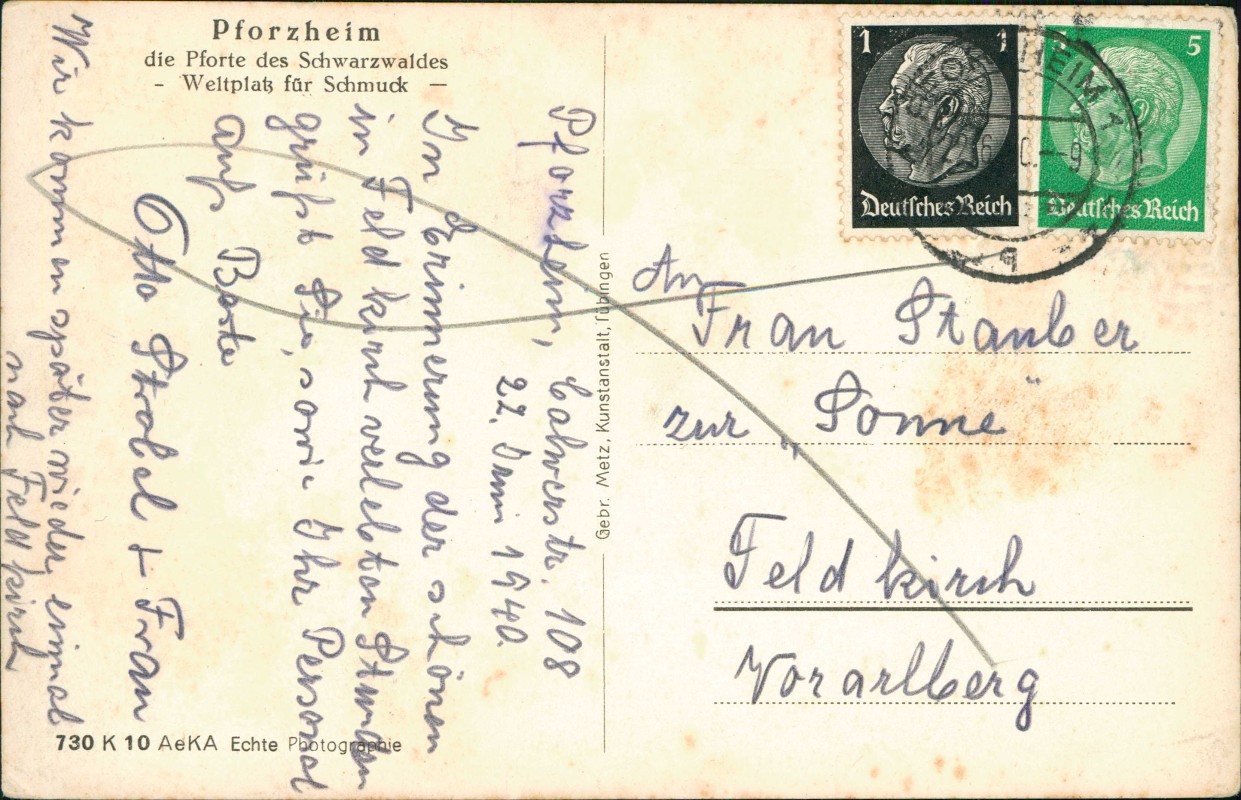 Pforzheim
die Pforte des Schwarzwaldes
- Weltplatz für Schmuck -
Pforzheim, Calwerstr. 108
22. Juni 1940.
In Erinnerung der schönen
in Feldkirch verlebten Stunden
grüßt Sie, sowie Ihr Personal
aufs Beste
Otto Strobel + Frau
Wir kommen später wieder einmal
nach Feldkirch
730 K 10 AeKA Echte Photographie
Gebr. Metz, Kunstanstalt, Tübingen
1 1
Deutsches Reich
5 5
Deutsches Reich
HEIM 1
An
Frau Stauber
zur „Sonne"
Feldkirch
Vorarlberg